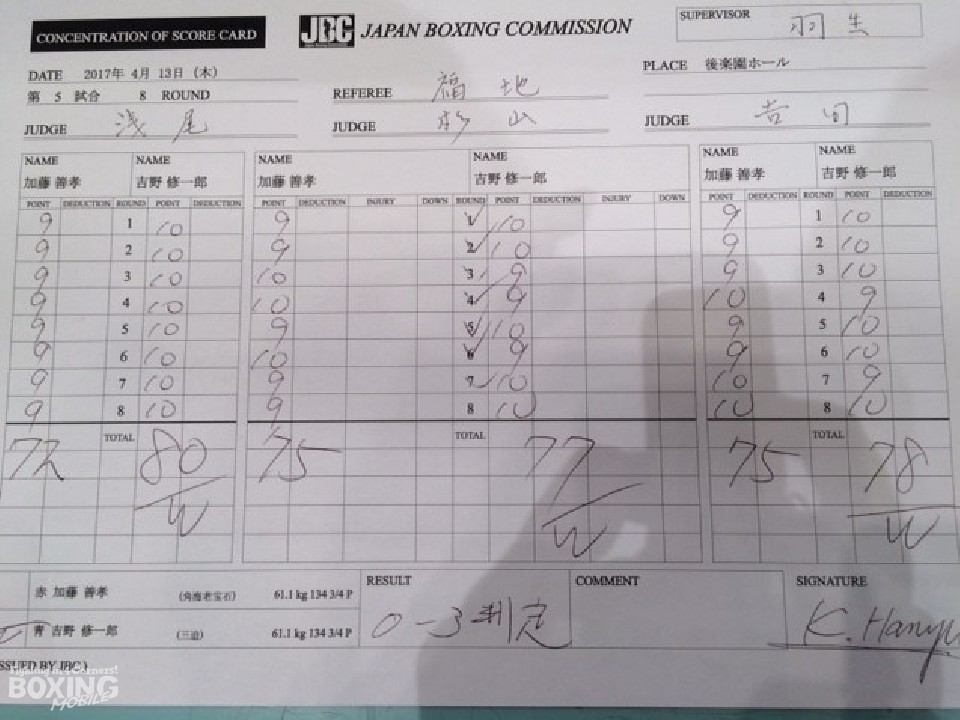 CONCENTRATION OF SCORE CARD JBC JAPAN BOXING COMMISSION SUPERVISOR 羽生
DATE 2017年 4月 13日 (木) PLACE 後楽園ホール
第 5 試合 8 ROUND REFEREE 福地
JUDGE 浅尾 JUDGE 杉山 JUDGE 吉田
NAME NAME NAME NAME NAME NAME
加藤 善孝 吉野 修一郎 加藤 善孝 吉野 修一郎 加藤 善孝 吉野 修一郎
POINT DEDUCTION ROUND POINT DEDUCTION POINT DEDUCTION INJURY DOWN ROUND POINT DEDUCTION INJURY DOWN POINT DEDUCTION ROUND POINT DEDUCTION
9 1 10 9 1 10 9 1 10
9 2 10 9 2 10 9 2 10
9 3 10 10 3 9 9 3 10
9 4 10 10 4 9 10 4 9
9 5 10 9 5 10 9 5 10
9 6 10 10 6 9 9 6 10
9 7 10 9 7 10 10 7 9
9 8 10 9 8 10 10 8 10
72 TOTAL 80 75 TOTAL 77 75 TOTAL 78
W W W
赤 加藤 善孝 (角海老宝石) 61.1 kg 134 3/4 P RESULT COMMENT SIGNATURE
青 吉野 修一郎 (三迫) 61.1 kg 134 3/4 P 0-3 判定 K. Hanyu
ISSUED BY JBC)
Fighting in 4 Corners!
BOXING
MOBILE